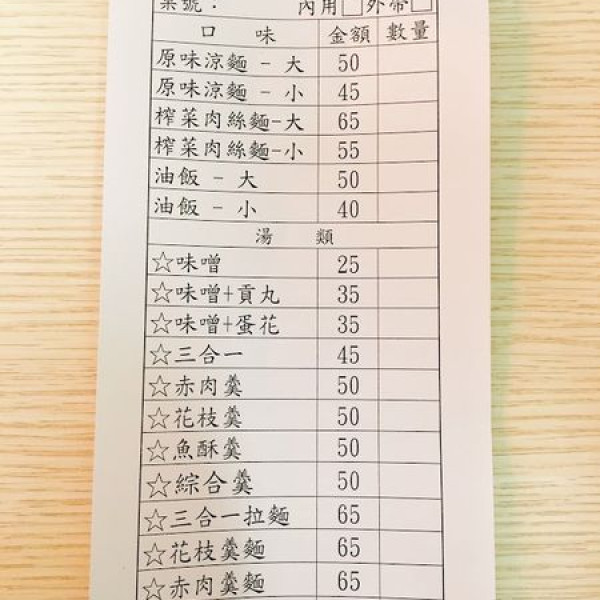 桌號： 內用□ 外帶□
口 味 金額 數量
原味涼麵 - 大 50
原味涼麵 - 小 45
榨菜肉絲麵-大 65
榨菜肉絲麵-小 55
油飯 - 大 50
油飯 - 小 40
湯 類
☆味噌 25
☆味噌+貢丸 35
☆味噌+蛋花 35
☆三合一 45
☆赤肉羹 50
☆花枝羹 50
☆魚酥羹 50
☆綜合羹 50
☆三合一拉麵 65
☆花枝羹麵 65
☆赤肉羹麵 65